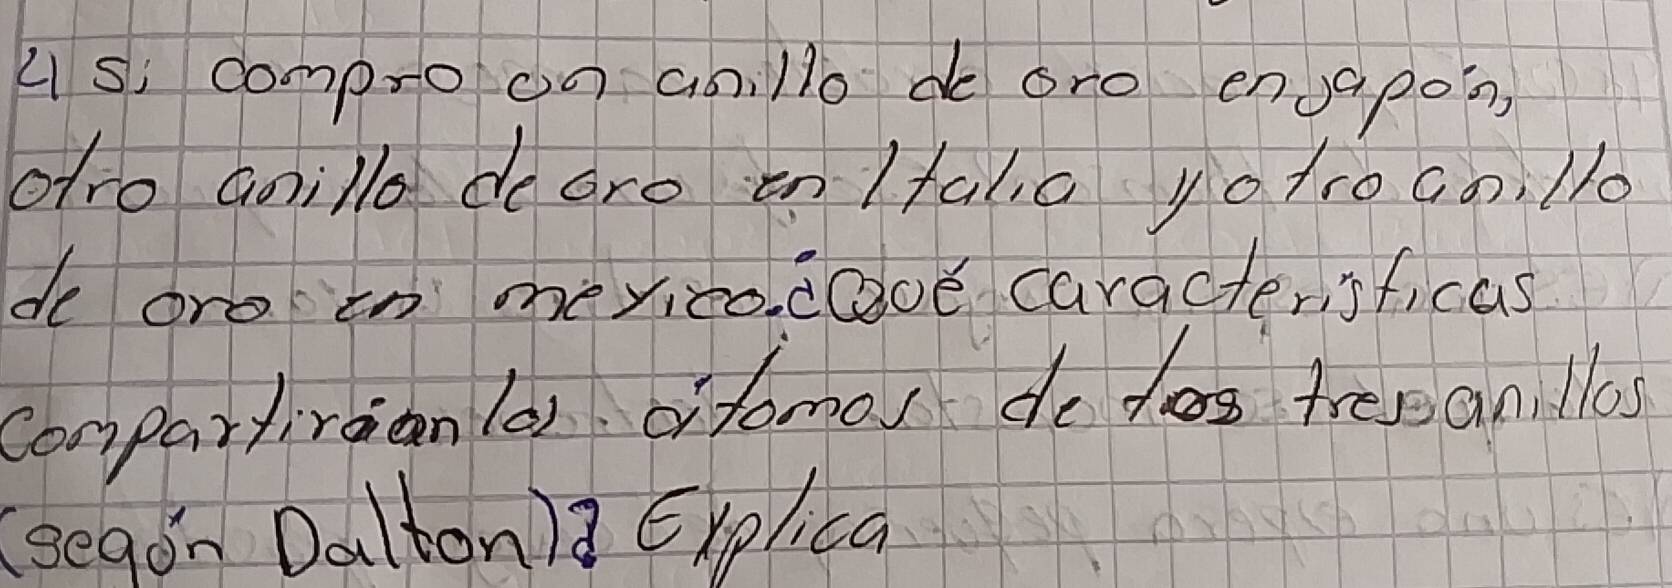 4 Si compro un anillo de oro en japón,
otro anillo de oro en Italia y otro anillo
de oro en mexico. ¿Qué características
compartirían los átomos de los tres anillos
(según Dalton)? Explica